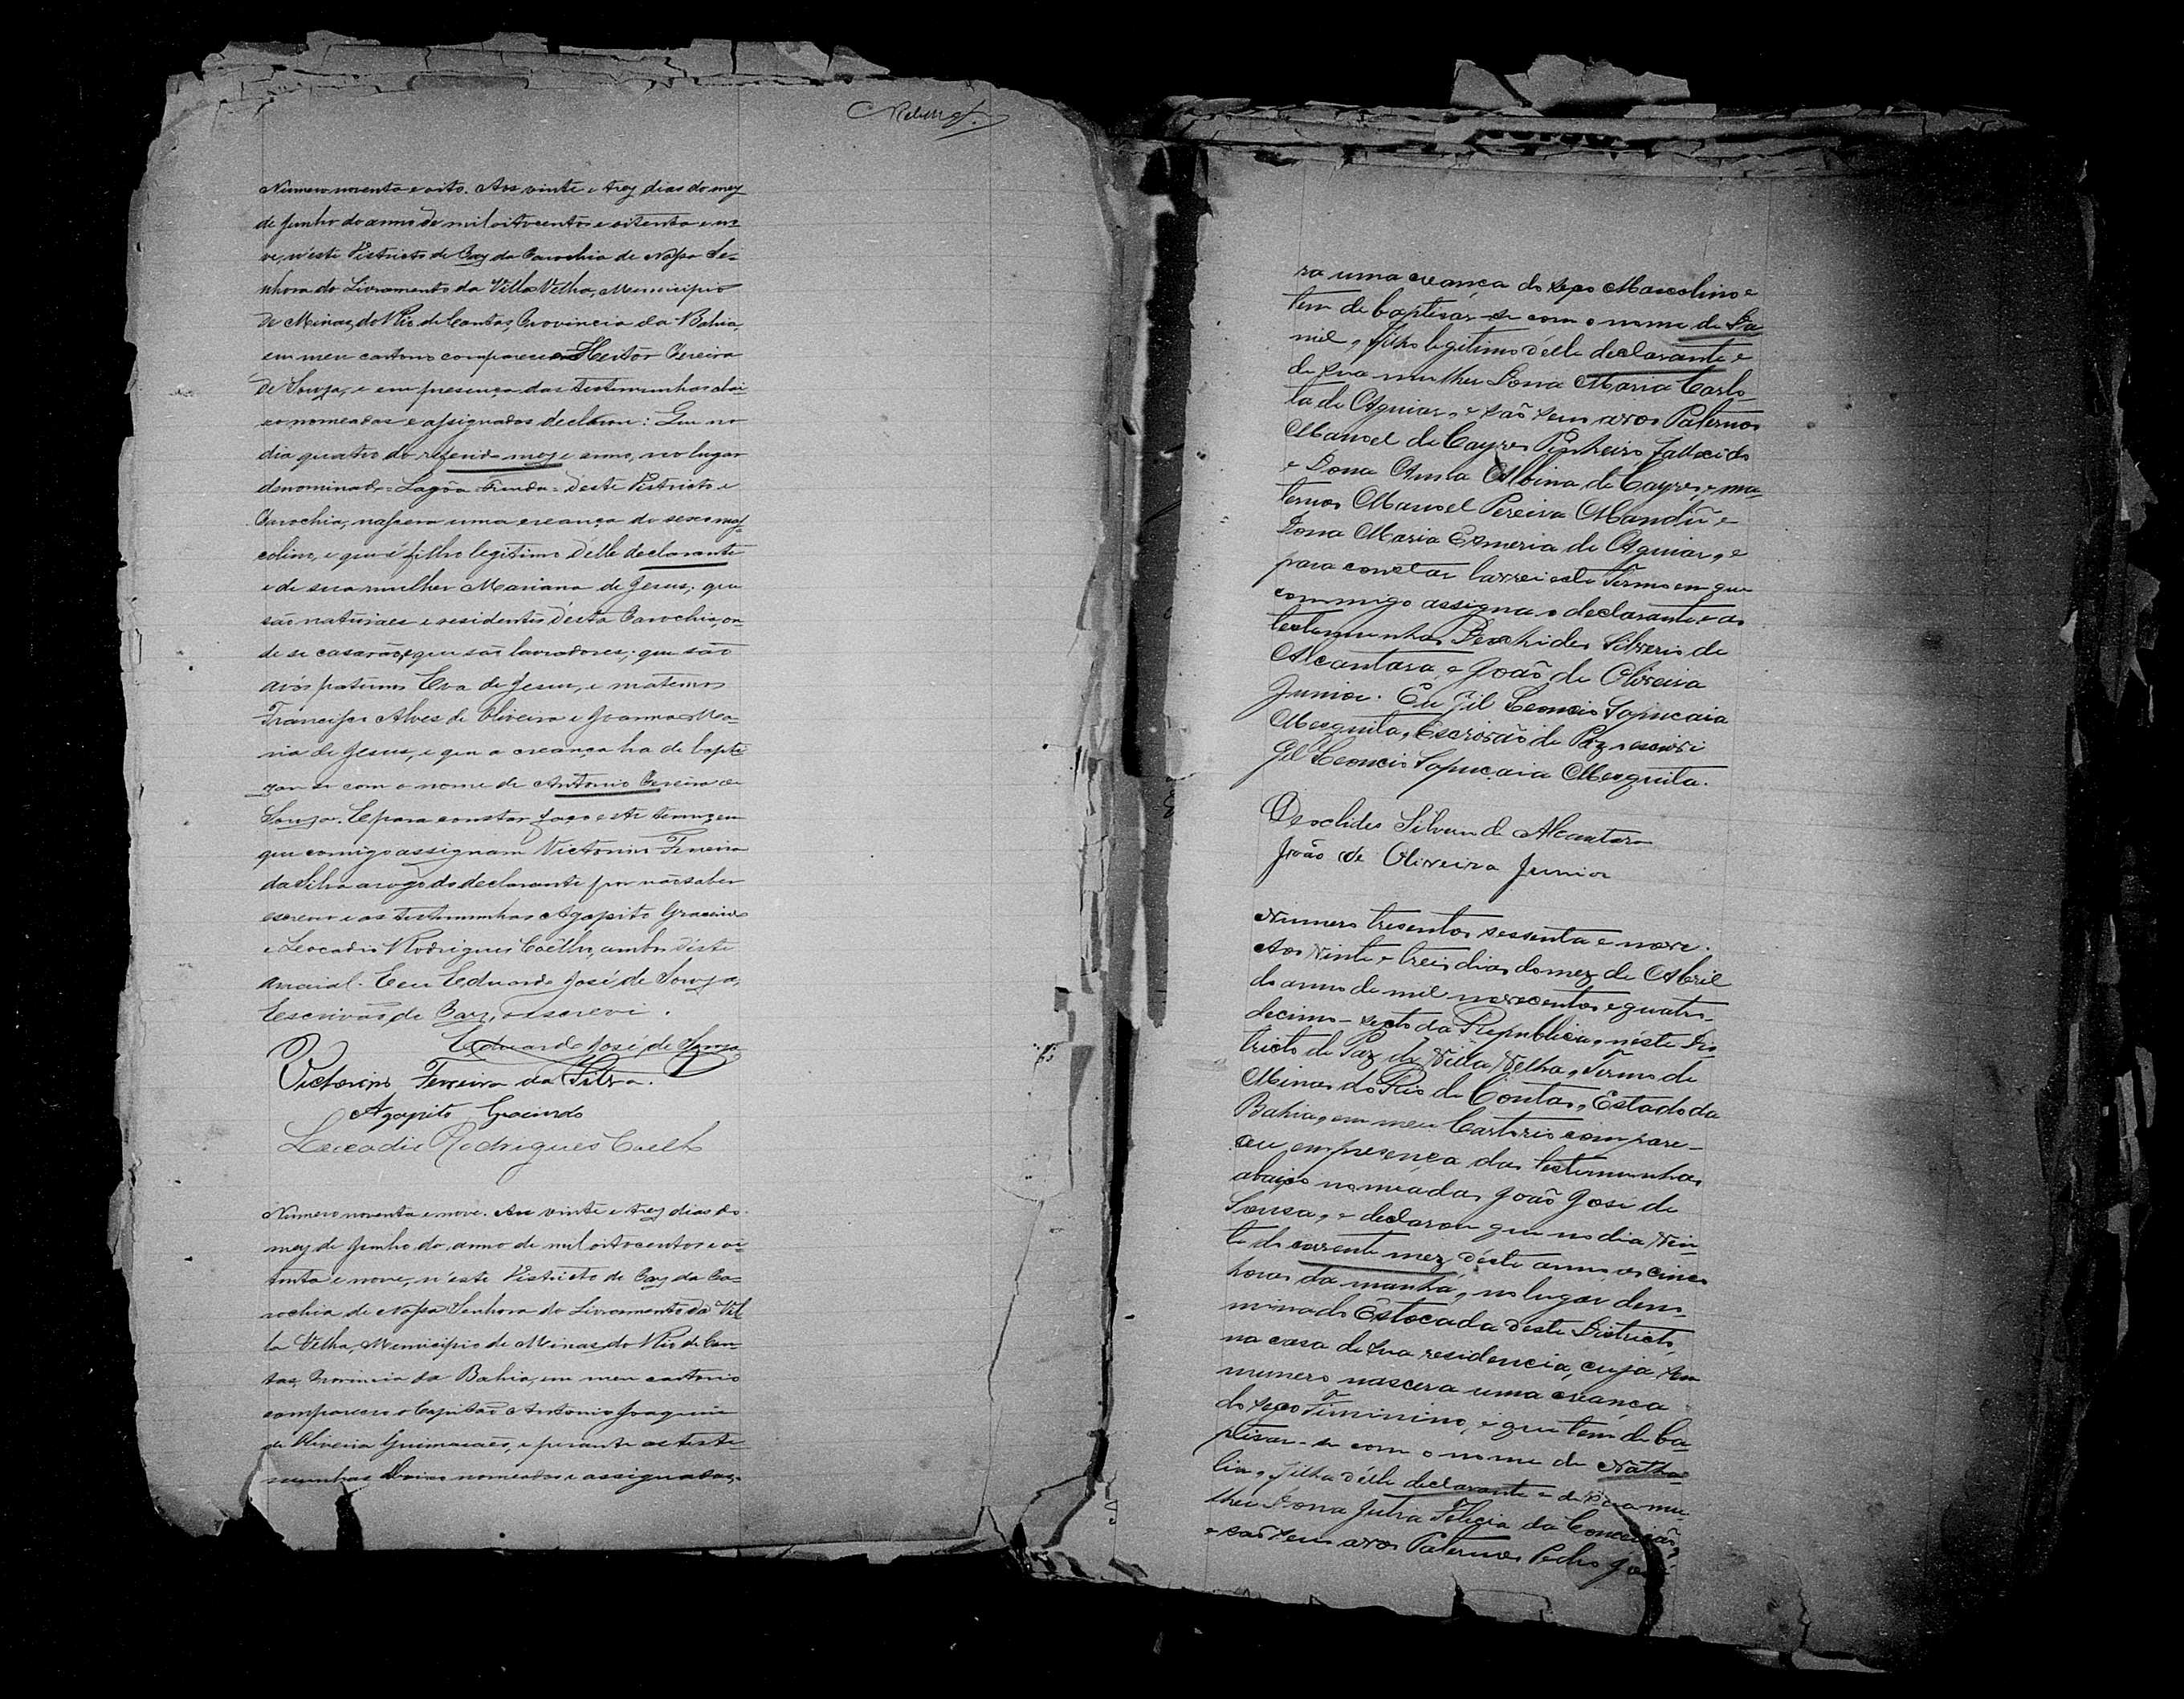 Numero noventa e oito. Aos vinte e trez dias do mez
de Junho do anno de mil oitocentos e oitenta e no-
ve, n'este Districto de Paz da Parochia de Nossa Se-
nhora do Livramento da Villa Velha, Municipio
de Minas do Rio de Contas, Provincia da Bahia,
em meu cartorio compareceo Heitor Pereira
de Souza, e em presença das testemunhas abai-
xo nomeadas e assignados declarou: Que no
dia quatro do referido mez e anno, no lugar
denominado = Lagôa Funda = deste Districto e
Parochia, nascera uma creança do sexo mas-
colino, e que é filho legitimo d'elle declarante
e de sua mulher Mariana de Jesus; que
são naturaes e residentes d'esta Parochia, on-
de se casarão, e que são lavradores; que são
avós paternos Eva de Jesus, e maternos
Francisco Alves de Oliveira e Joanna Ma-
ria de Jesus, e que a creança ha de bapti-
zar se com o nome de Antonio Pereira de
Souza. E para constar faço este termo, em
que comigo assignam Victorino Ferreira
da Silva a rogo do declarante por não saber
escrever e as testemunhas Agapito Gracindo
e Leocadio Rodrigues Coêlho, ambos d'este
arraial. E eu Eduardo José de Souza,
Escrivão de Paz, o escrevi.
Eduardo José de Souza
Victorino Ferreira da Silva.
Agapito Gracindo
Leocadio Rodrigues Coelho
Numero noventa e nove. Aos vinte e trez dias do
mez de Junho do anno de mil oitocentos e oi-
tenta e nove, n'este Districto de Paz da Pa-
rochia de Nossa Senhora do Livramento da Vil-
la Velha, Municipio de Minas do Rio de Con-
tas, Provincia da Bahia, em meu cartorio
compareceo o Capitão Antonio Joaquim
de Oliveira Guimarães, e perante as teste-
munhas abaixo nomeados e assignadas,
ra uma creança do sexo Mascolino e
tem de baptisar-se com o nome de Da
niel, filho legitimo d'elle declarante e
de sua mulher Dona Maria Carlo-
ta de Aguiar, e são seus avos Paternos
Manoel de Cayres Pinheiro, fallecido
e Dona Anna Albina de Cayres, e ma-
ternos Manoel Pereira Mandú e
Dona Maria Esmeria de Aguiar, e
para constar lavrei este Termo em que
commigo assigna o declarante e as
testemunhas Deochides Silverio de
Alcantara, e João de Oliveira
Junior. Eu Gil Leoncio Sapucaia
Mesquita, Escrivão de Paz o escrivi
Gil Leoncio Sapucaia Mesquita.
Deoclides Silverio de Alcantara
João de Oliveira Junior
Numero tresentos sessenta e nove.
Aos Vinte e treis dias do mez de Abril
do anno de mil novecentos e quatro,
decimo-sexto da Republica, n'este Dis-
tricto de Paz de Villa Velha, Termo de
Minas do Rio de Contas, Estado da
Bahia, em meu Cartorio compare-
ceu em presença das testemunhas
abaixo nomeadas João José de
Sousa, e declarou que no dia Vin-
te do corrente mez, d'este anno as cinco
horas da manhá, no lugar deno-
minado Estocada deste Districto,
na casa de sua residencia, cuja sem
numero nascera uma creança
do sexo Fiminino, e que tem de ba-
ptisar-se com o nome de Natha-
lia, filha d'elle declarante e de sua mu-
lher Dona Julia Felicia da Conceição,
e são seus avos Paternos Pedro José